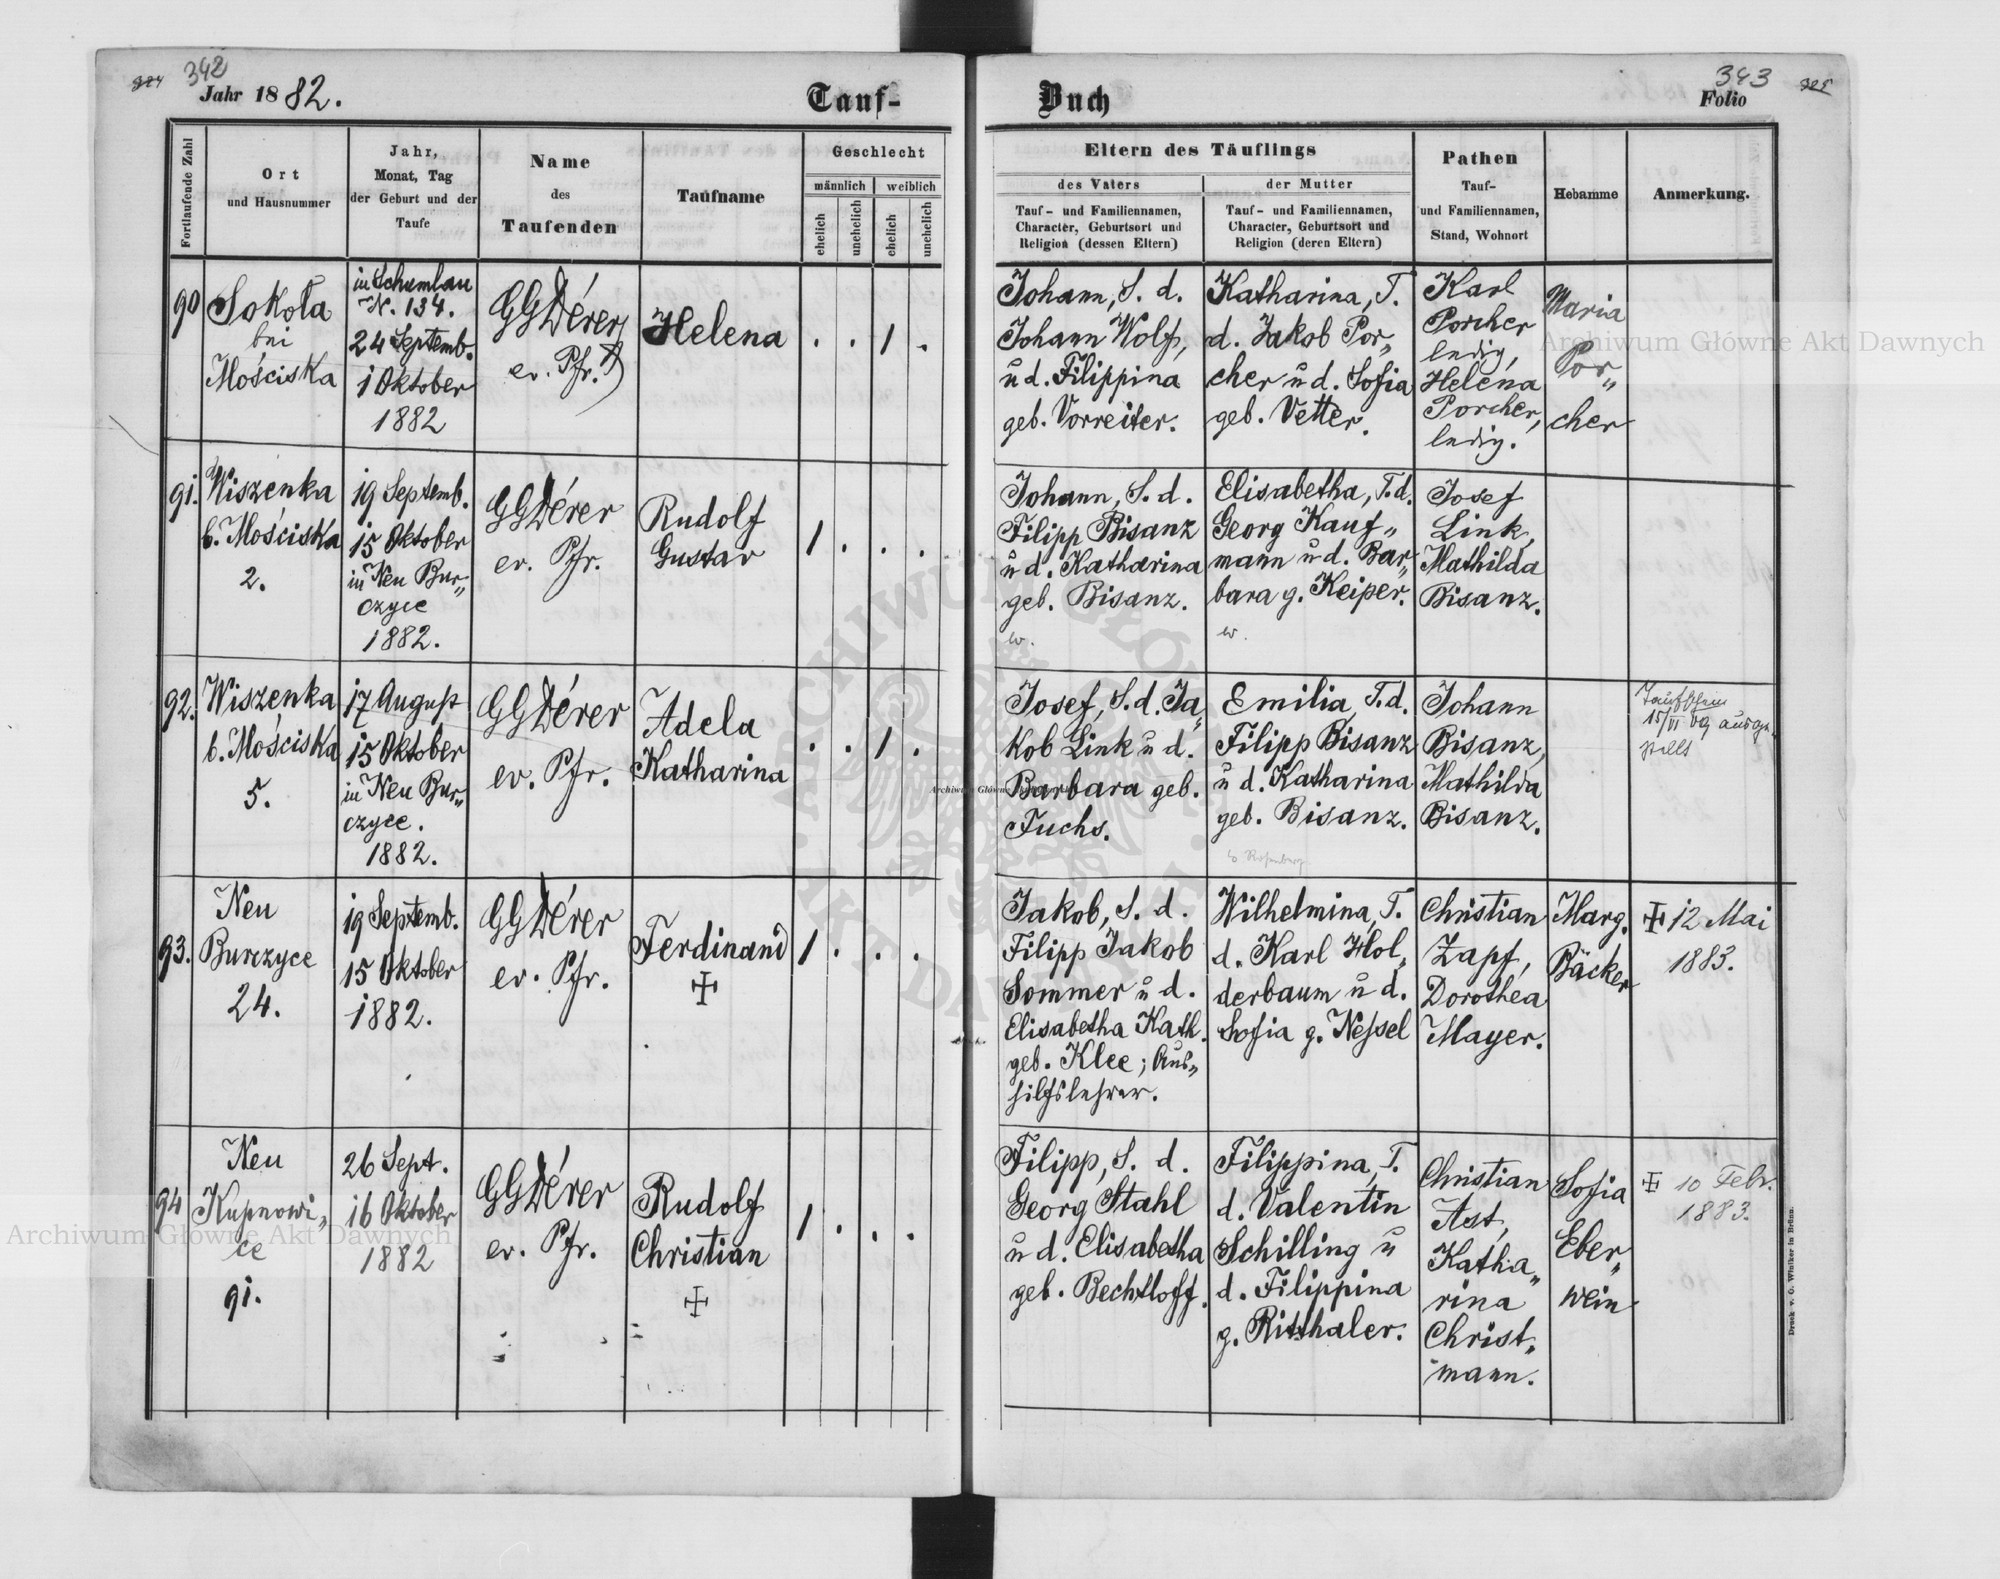 342
Jahr 1882.
Tauf-
Buch
343
325
Folio
Fortlaufende Zahl
Ort
und Hausnummer
Jahr,
Monat, Tag
der Geburt und der
Taufe
Name
des
Taufenden
Taufname
Geschlecht
männlich
weiblich
ehelich
unehelich
ehelich
unehelich
Eltern des Täuflings
des Vaters
der Mutter
Tauf- und Familiennamen,
Character, Geburtsort und
Religion (dessen Eltern)
Tauf- und Familiennamen,
Character, Geburtsort und
Religion (deren Eltern)
Pathen
Tauf-
und Familiennamen,
Stand, Wohnort
Hebamme
Anmerkung.
90
Sokoła
bei
Mościska
in Schumlau
N. 134.
24 Septemb.
1 Oktober
1882
GGDérer
ev. Pfr.
Helena
. . 1 .
Johann, S. d.
Johann Wolf,
u d. Filippina
geb. Vorreiter.
Katharina, T.
d. Jakob Por„
cher u d. Sofia
geb. Vetter.
Karl
Porcher
ledig,
Helena
Porcher,
ledig.
Maria
Por„
cher
91.
Wiszenka
b. Mościska
2.
19 Septemb.
15 Oktober
in Neu Bur„
czyce
1882.
GGDérer
ev. Pfr.
Rudolf
Gustav
1 . . .
Johann, S. d.
Filipp Bisanz
u d. Katharina
geb. Bisanz.
w.
Elisabetha, T. d.
Georg Kauf„
mann u d. Bar„
bara g. Keiper.
w.
Josef
Link,
Mathilda
Bisanz.
92.
Wiszenka
b. Mościska
5.
17 August
15 Oktober
in Neu Bur„
czyce.
1882.
GGDérer
ev. Pfr.
Adela
Katharina
. . 1 .
Josef, S. d. Ja„
kob Link u d.
Barbara geb.
Fuchs.
Emilia, T. d.
Filipp Bisanz
u d. Katharina
geb. Bisanz.
Johann
Bisanz,
Mathilda
Bisanz.
Taufschein
15/VI 09 ausge„
stellt
93.
Neu
Burczyce
24.
19 Septemb.
15 Oktober
1882.
GGDérer
ev. Pfr.
Ferdinand
1 . . .
Jakob, S. d.
Filipp Jakob
Sommer u d.
Elisabetha Kath.
geb. Klee; Aus„
hilfslehrer.
Wilhelmina, T.
d. Karl Hol„
derbaum u d.
Sofia g. Neſsel
Christian
Zapf,
Dorothea
Mayer.
Marg.
Bäcker
12 Mai
1883.
94
Neu
Kupnowi„
ce
91.
26 Sept.
16 Oktober
1882
GGDérer
ev. Pfr.
Rudolf
Christian
1 . . .
Filipp, S. d.
Georg Stahl
u d. Elisabetha
geb. Bechtloff.
Filippina, T.
d. Valentin
Schilling u
d. Filippina
g. Ritthaler.
Christian
Ast,
Katha„
rina
Christ„
mann.
Sofia
Eber„
wein
10 Febr.
1883.
Druck v. G. Winiker in Brünn.
Archiwum Główne Akt Dawnych
Archiwum Główne Akt Dawnych
ARCHIWUM GŁÓWNE AKT DAWNYCH